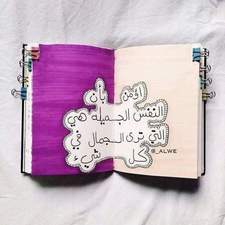 اؤمن بأن
النفس الجميلة هي
التي ترى الجمال في
كل شيء
@_ALWE